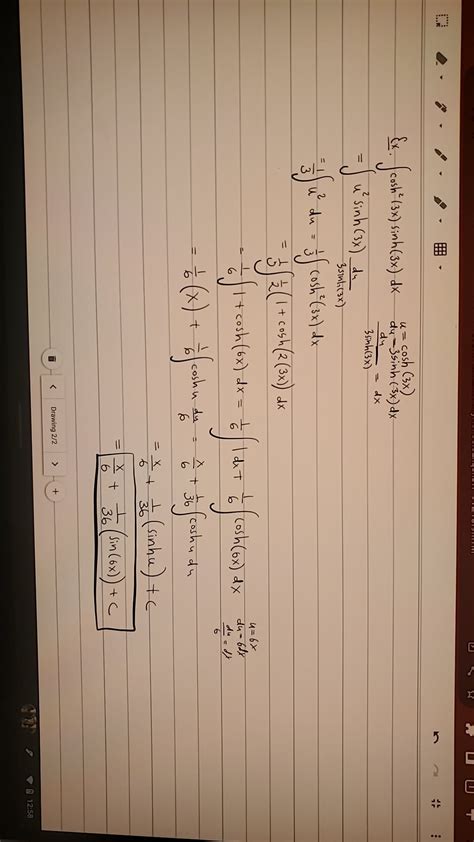 Ex. ∫cosh²(3x) sinh(3x) dx   u = cosh(3x)
du = 3sinh(3x)dx
= ∫u² sinh(3x) du/3sinh(3x)   du/3sinh(3x) = dx
= 1/3 ∫u² du = 1/3 ∫cosh²(3x) dx
= 1/3 ∫ 1/2 (1 + cosh(2(3x)) dx
= 1/6 ∫1 + cosh(6x) dx = 1/6 ∫1dx + 1/6 ∫cosh(6x) dx   u = 6x
du = 6dx
du/6 = dx
= 1/6 (x) + 1/6 ∫cosh u du/6 = x/6 + 1/36 ∫cosh u du
= x/6 + 1/36 (sinh u) + C
= x/6 + 1/36 (sin(6x)) + C
< Drawing 2/2 > +
12:58